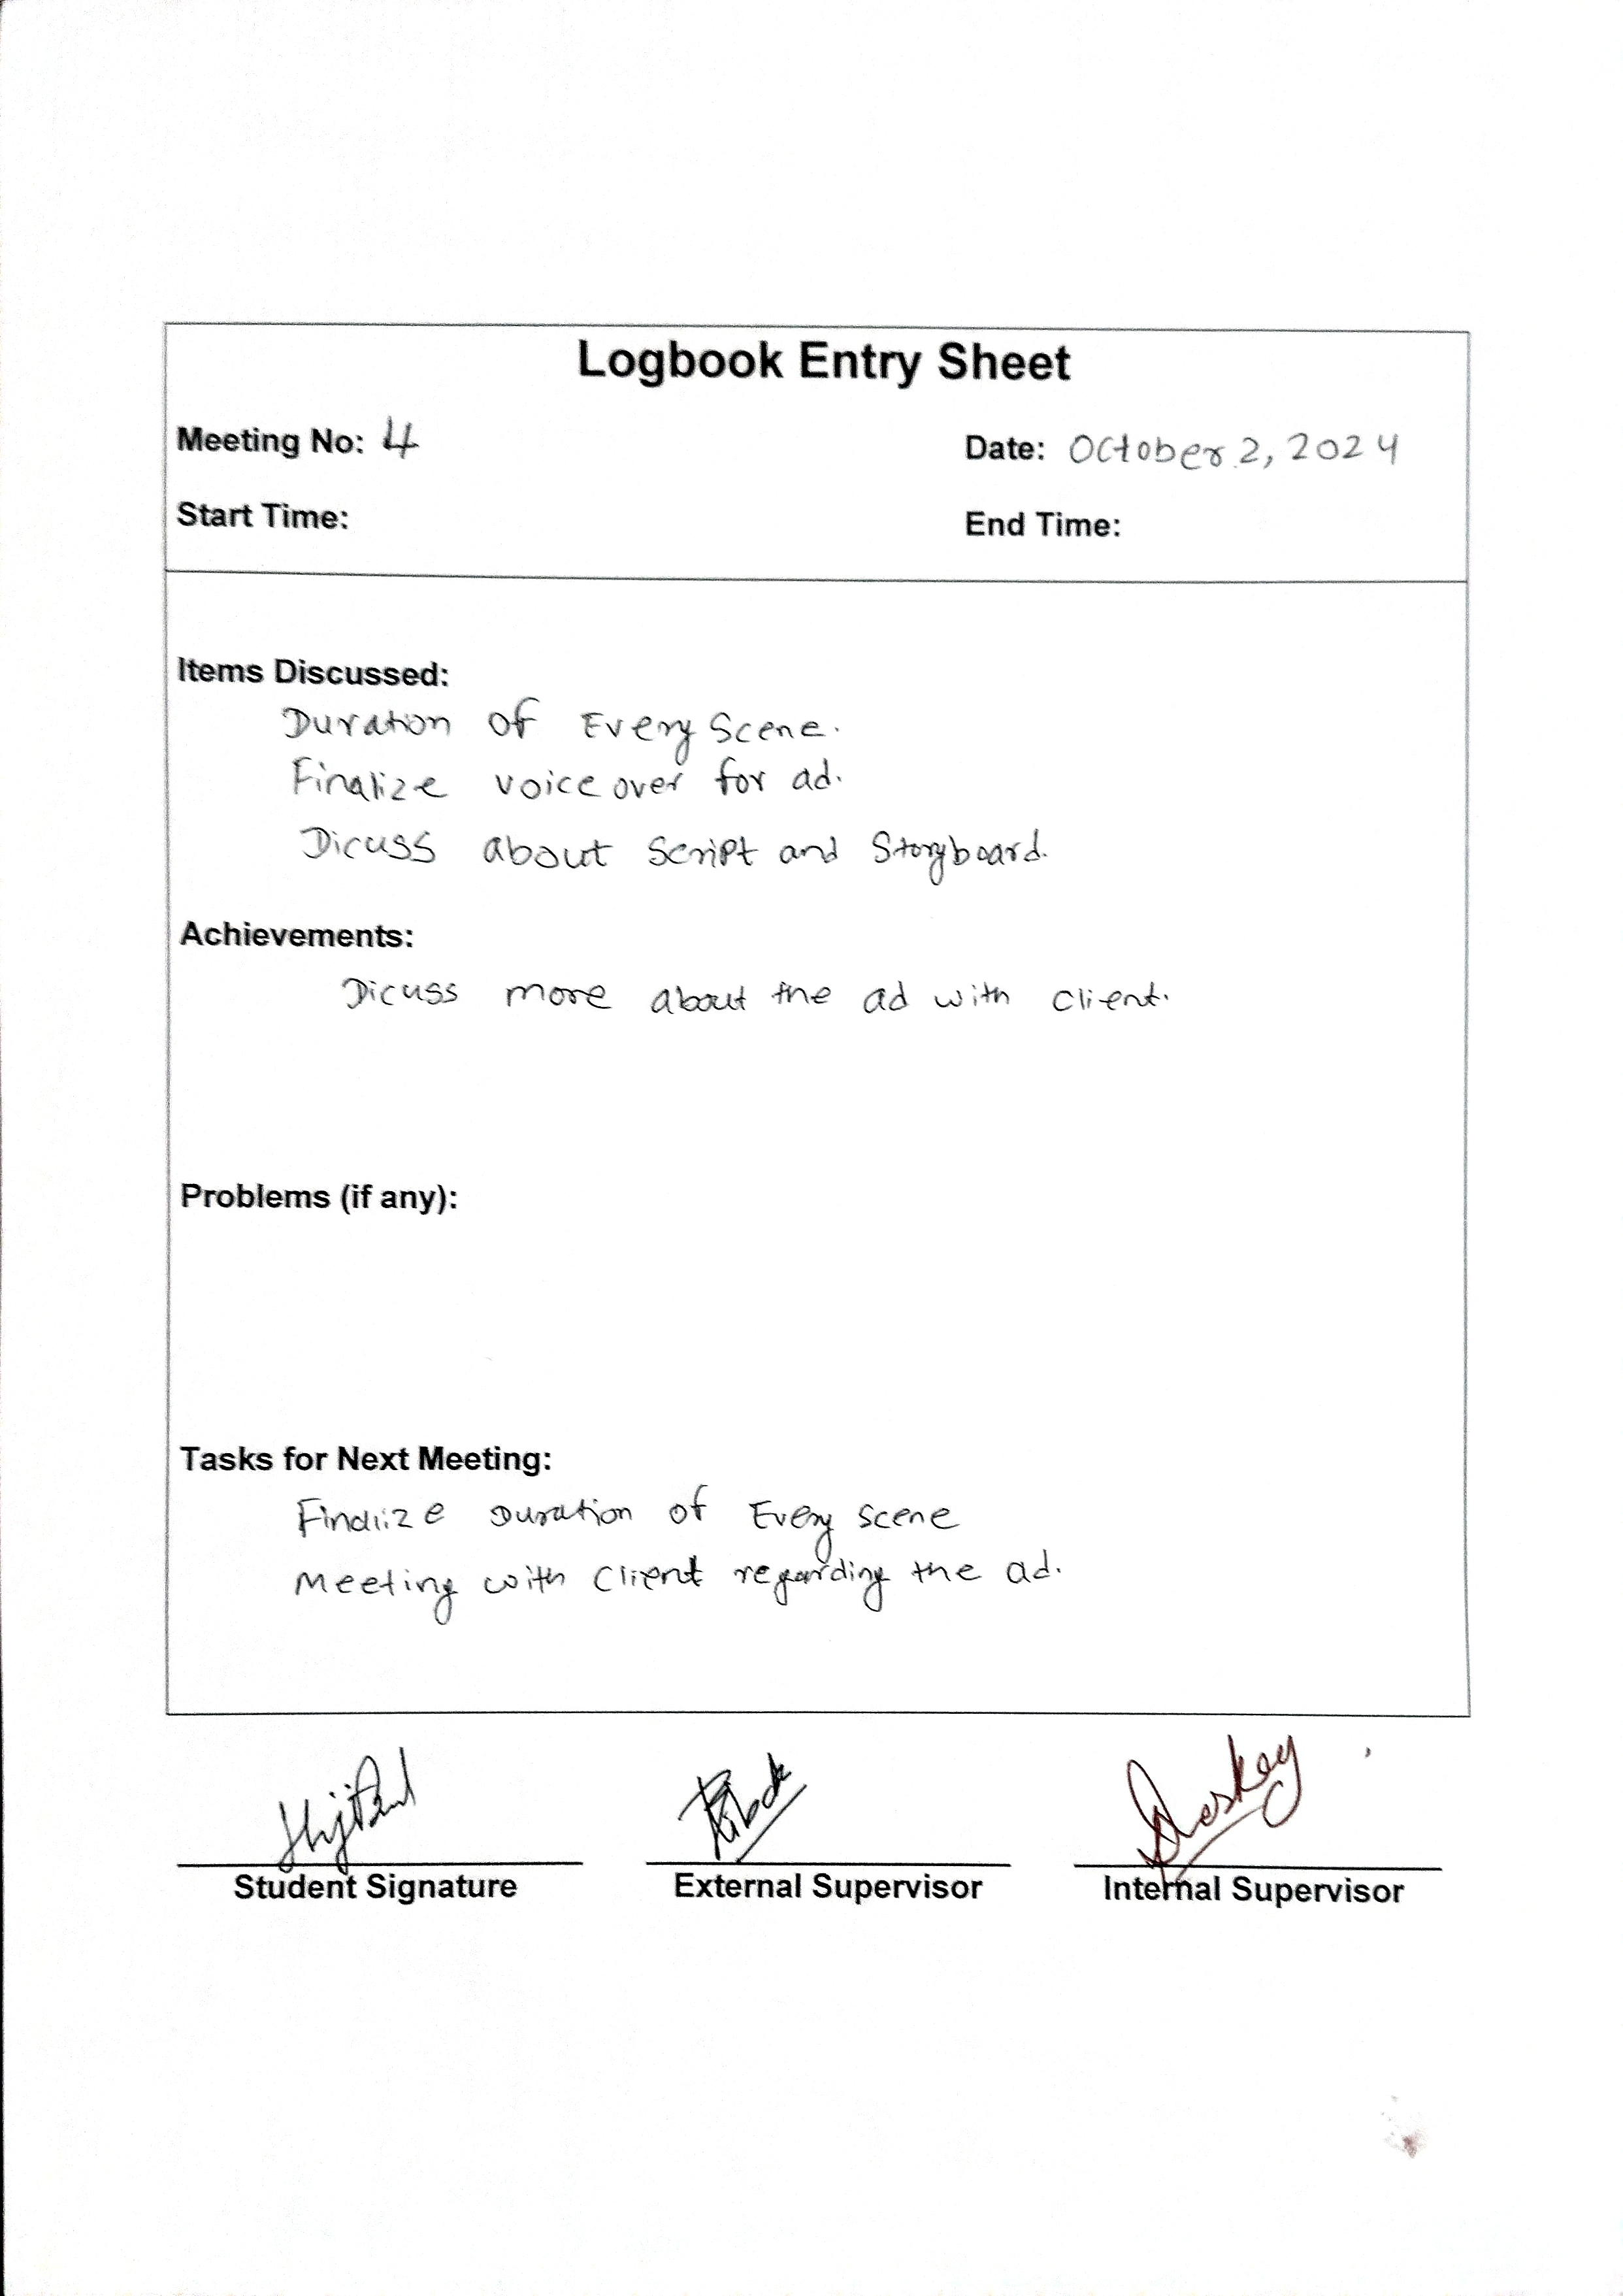 Logbook Entry Sheet
Meeting No: 4
Date: October 2, 2024
Start Time:
End Time:
Items Discussed:
Duration of Every Scene.
Finalize voice over for ad.
Dicuss about Script and Storyboard.
Achievements:
Dicuss more about the ad with client.
Problems (if any):
Tasks for Next Meeting:
Finalize Duration of Every scene
Meeting with Client regarding the ad.
Student Signature
External Supervisor
Internal Supervisor